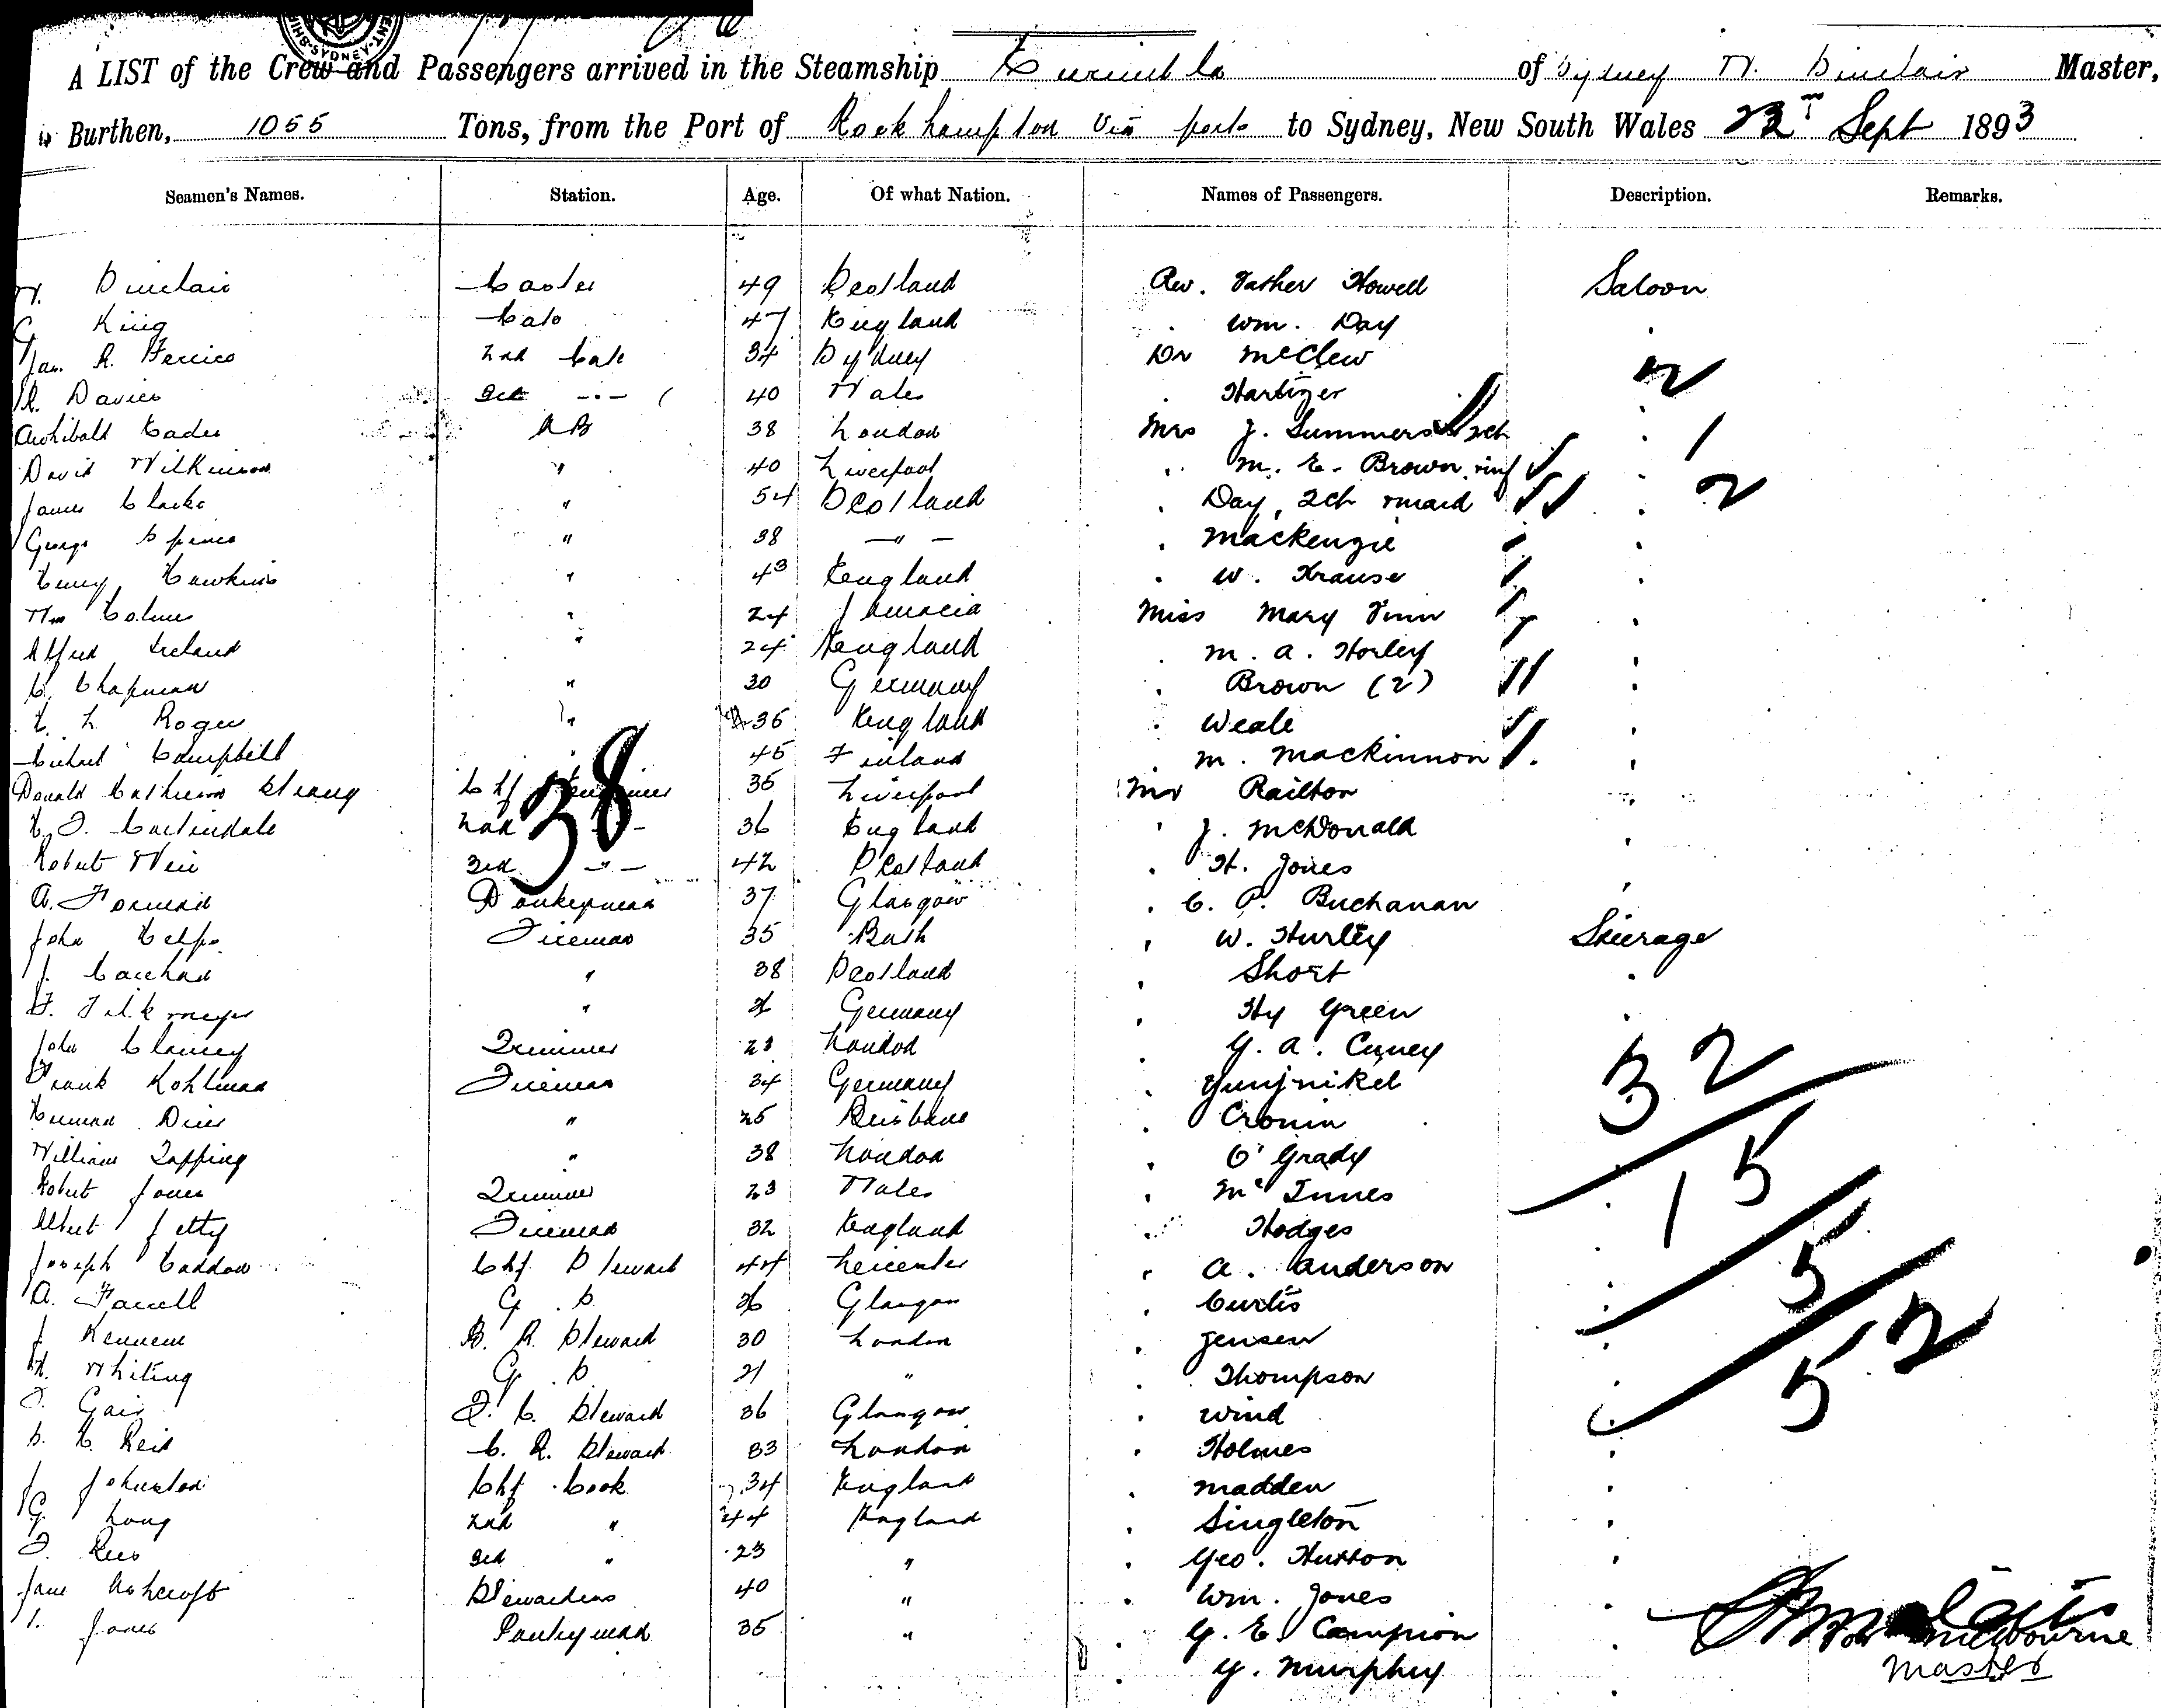 A LIST of the Crew and Passengers arrived in the Steamship of Sydney W. Sinclair Master,
Burthen, 1055 Tons, from the Port of Rockhampton via ports to Sydney, New South Wales Sept 1893
Seamen's Names. Station. Age. Of what Nation. Names of Passengers. Description. Remarks.
W. Sinclair Master 49 Scotland Rev. Father Howell Saloon
G King Mate 47 England " Wm. Day "
Jas. R. 2nd Mate 34 Sydney Dr McClew 2
R. Davies 3rd -"- 40 Wales " Hartiger
Archibald AB 38 London Mrs J. Summers 2ch " 1
David Wilkinson " 40 Liverpool " M. E. Brown "
James Clarke " 54 Scotland " Day, 2ch & maid " 2
George Spence " 38 -"- " Mackenzie "
Henry Hawkins " 43 England " W. Krause "
Wm Holmes " 24 Jamacia Miss Mary Finn "
Alfred Ireland " 24 England " M. A. Horley "
C. Chapman " 30 Germany " Brown (2) "
H. L. Roger " 36 England " Weale "
Michael Campbell " 45 " M. Mackinnon "
Donald Strang Chf Engineer 35 Liverpool Mr Railton "
38
H. J. Martindale 2nd -"- 36 England " J. McDonald "
Robert Weir 3rd -"- 42 Scotland " H. Jones "
A. Donkeyman 37 Glasgow " C. P. Buchanan "
John Fireman 35 Bath " W. Hurley Steerage
J. " 38 Scotland " Short "
F. " Germany " Hy Green "
John Clancey Trimmer 23 London " G. A. Cuney 32
Frank Kohlman Fireman 34 Germany " Yunjnikel
Herman " 25 Brisbane " Cronin
William Tapping " 38 London " O'Grady 15
Robert Jones Trimmer 23 Wales " McInnes "
Albert Jetty Fireman 32 England " Hodges "
Joseph Haddow Chf Steward 44 Leicester " A. Anderson " 5
A. Farrell G. S 36 Glasgow " Curtis "
J B. R. Steward 30 London " Jensen "
H. Whiting G. S. 21 " " Thompson " 52
J. Gair F. C. Steward 36 Glasgow " Wind "
S. H. Reid S. R. Steward 33 London " Holmes "
J. Johnston Chf Cook 34 England " Madden "
G. Long 2nd " 44 England " Singleton "
J. Rees 3rd " 23 " " Geo. Hutton "
Jane Ashcroft Stewardess 40 " " Wm. Jones "
T. Jones Pantryman 35 " " G. E. Campion "
" G. Murphy "
Master